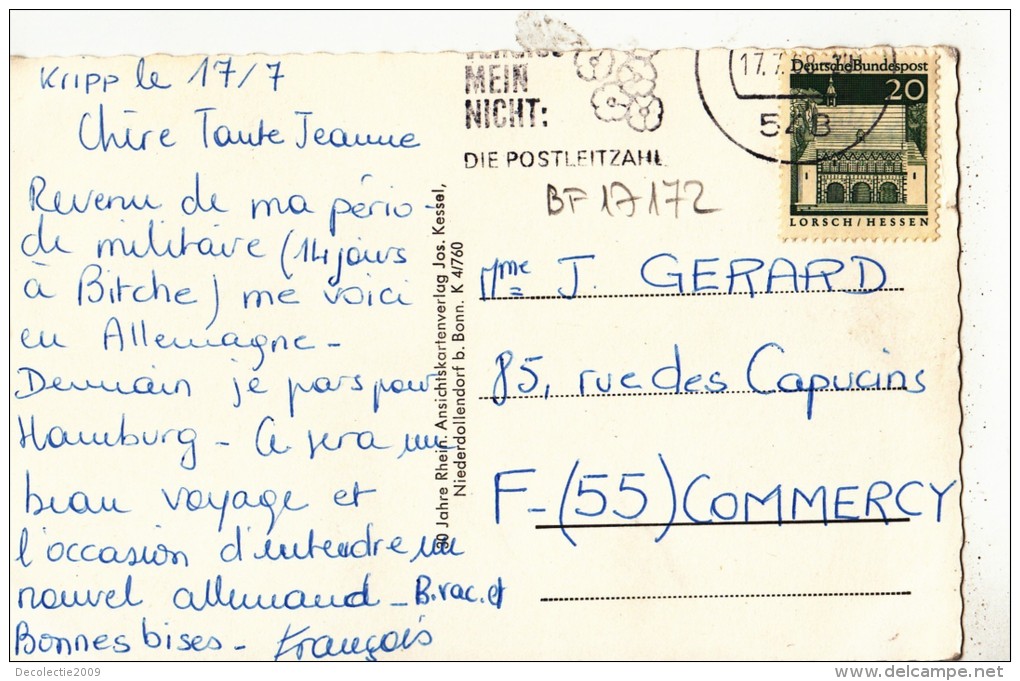 Kripp le 17/7
Chère Tante Jeanne
Revenu de ma pério-
de militaire (14 jours
à Bitche) me voici
en Allemagne -
Demain je pars pour
Hambourg - Ce sera un
beau voyage et
l'occasion d'entendre un
nouvel allemand - B. vac. et
Bonnes bises - François
30 Jahre Rhein. Ansichtskartenverlag Jos. Kessel,
Niederdollendorf b. Bonn. K 4/760
MEIN
NICHT:
DIE POSTLEITZAHL
17.7.68
548
Deutsche Bundespost
20
LORSCH/HESSEN
BF 17172
Mme J. GERARD
85, rue des Capucins
F-(55) COMMERCY
Decolectie2009
www.delcampe.net